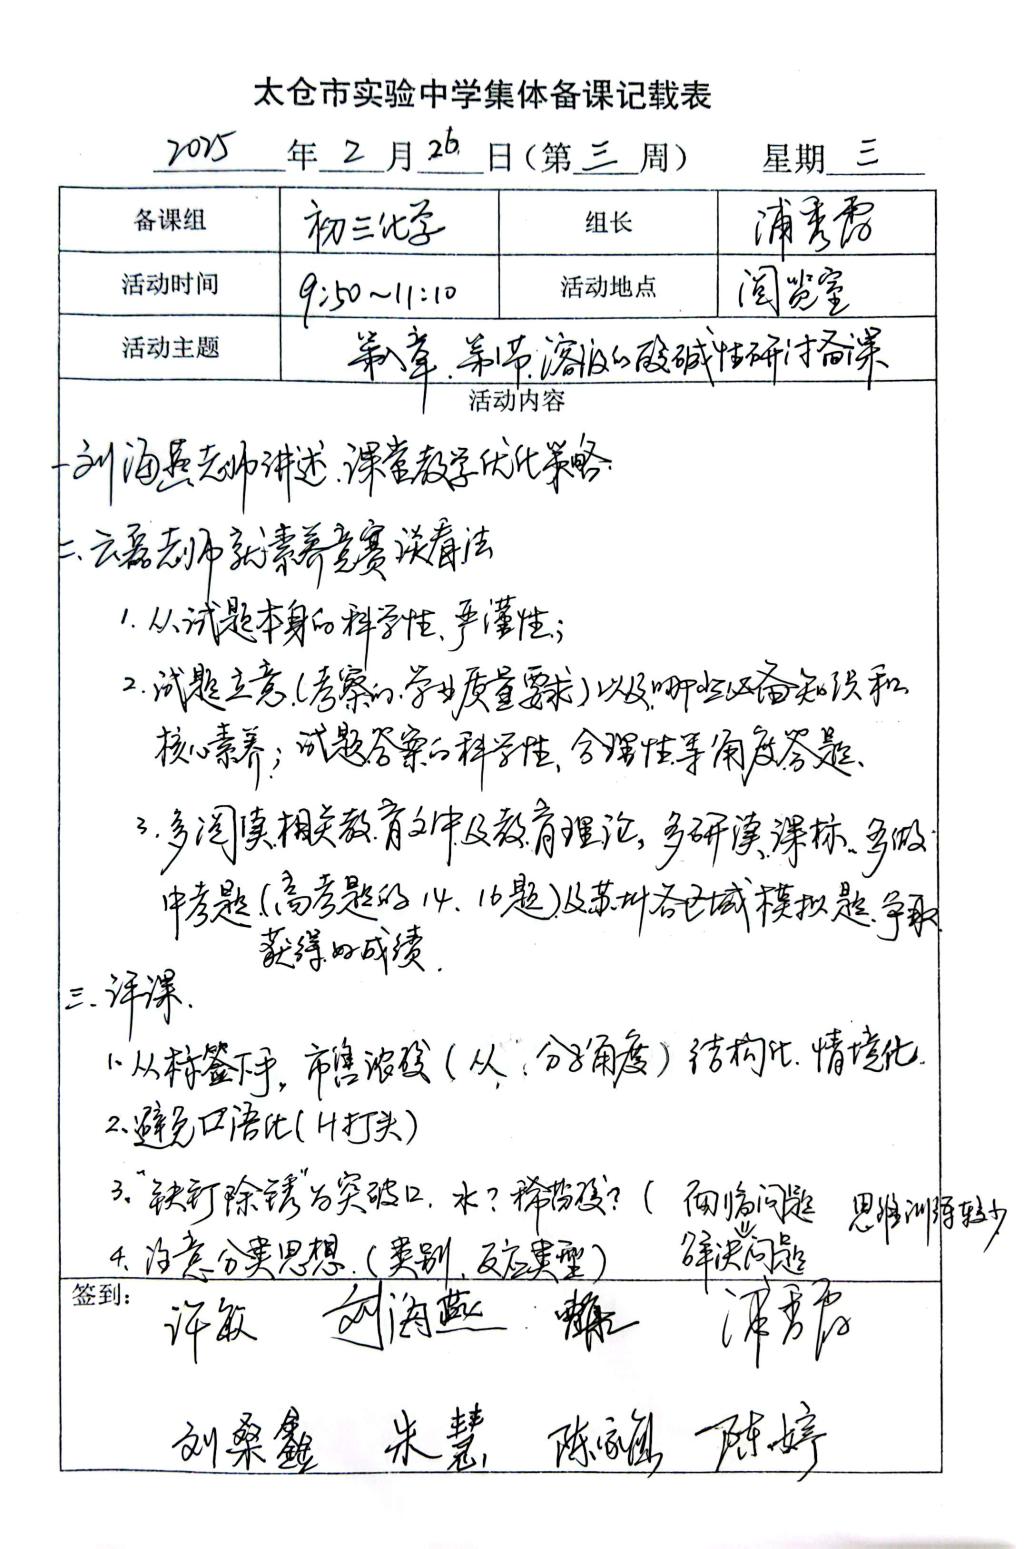 太仓市实验中学集体备课记载表
2025年2月26日(第三周) 星期三
备课组 初三化学 组长 浦秀霞
活动时间 9:50~11:10 活动地点 阅览室
活动主题 第八章、第1节、溶液的酸碱性研讨备课
活动内容
一刘海燕老师讲述、课堂教学优化策略.
二、云磊老师就素养竞赛谈看法
1. 从试题本身的科学性、严谨性;
2. 试题立意(考察的学业质量要求)以及哪些必备知识和
核心素养; 试题答案的科学性、合理性等角度答题、
3. 多阅读相关教育文件及教育理论, 多研读课标、多做
中考题(高考题的14、16题)及苏州各区域模拟题、争取
获得好成绩.
三、评课、
1、从标签下手, 市售浓硫(从、分子角度) 结构化、情境化.
2、避免口语化(H打头)
3、“铁钉除锈”为突破口、水? 稀盐酸? ( 面临问题 思维训练较少
⇓
4、注意分类思想、(类别、反应类型) 解决问题
签到:
许敏 刘海燕 浦秀霞
刘桑鑫 朱慧 陈婷